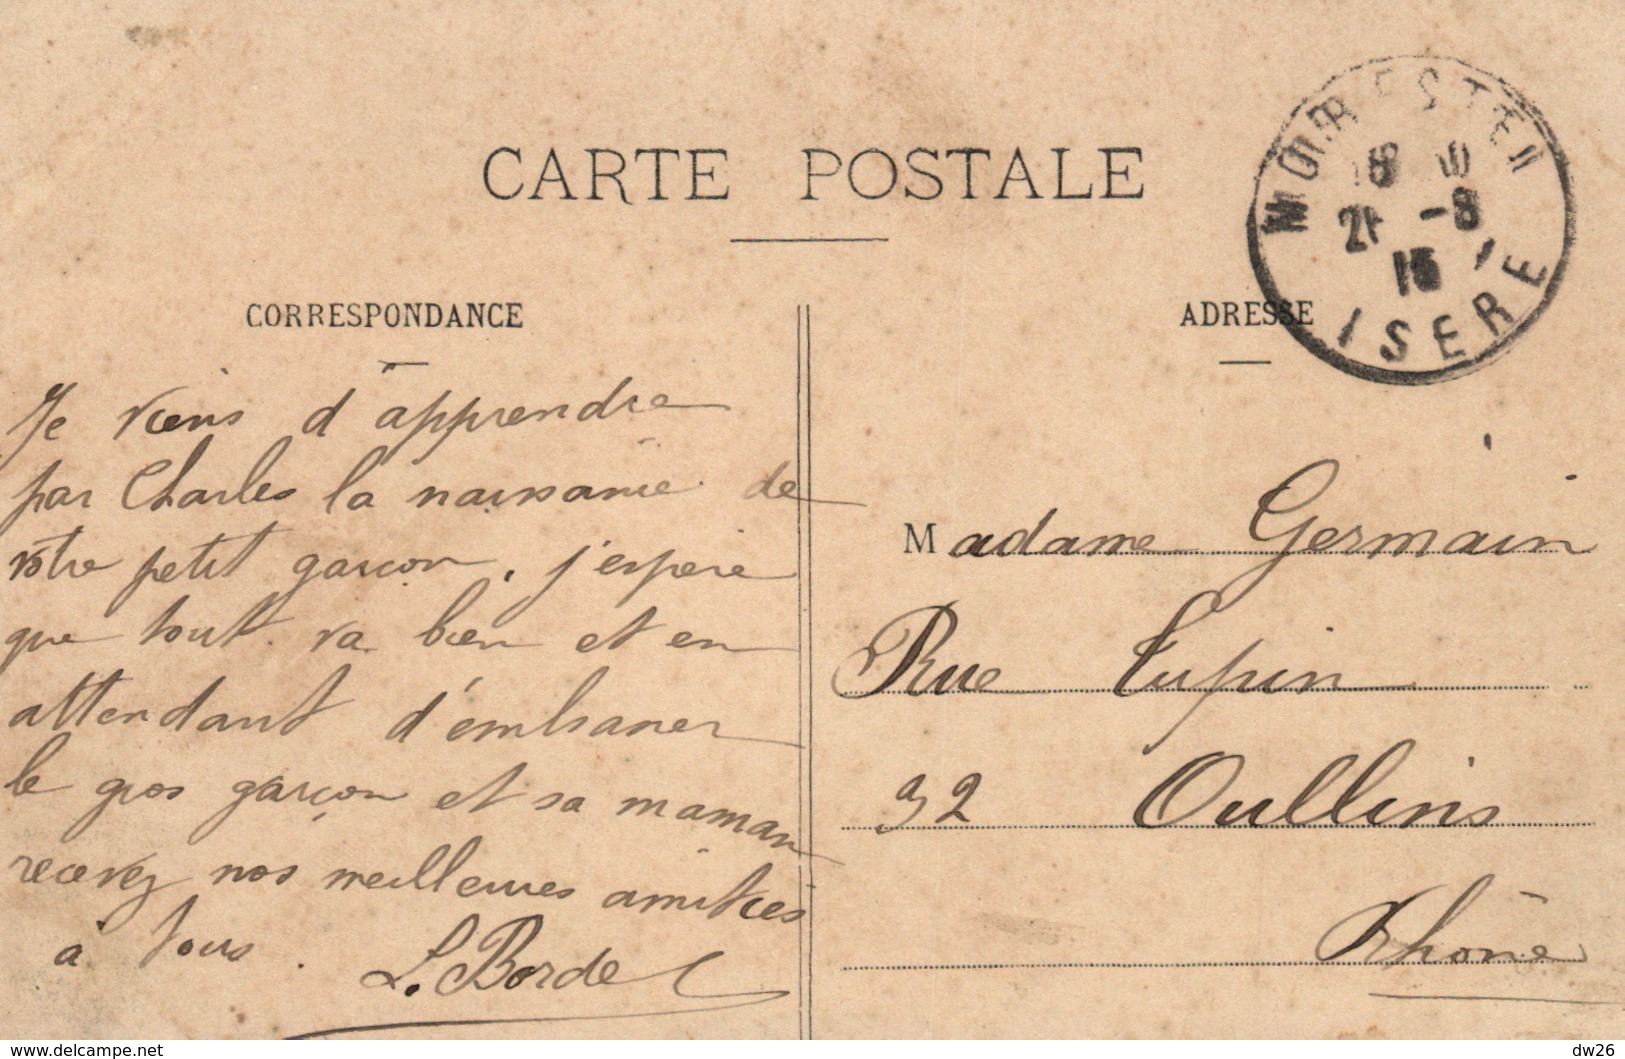 CARTE POSTALE
CORRESPONDANCE
Je viens d'apprendre
par Charles la naissance de
votre petit garçon, j'espère
que tout va bien et en
attendant d'embrasser
le gros garçon et sa maman
recevez nos meilleures amitiés
à tous.
L. Borde
ADRESSE
Madame Germain
Rue Tupin
32 Oullins
Rhône
ISERE
21 -8
15
www.delcampe.net
dw26